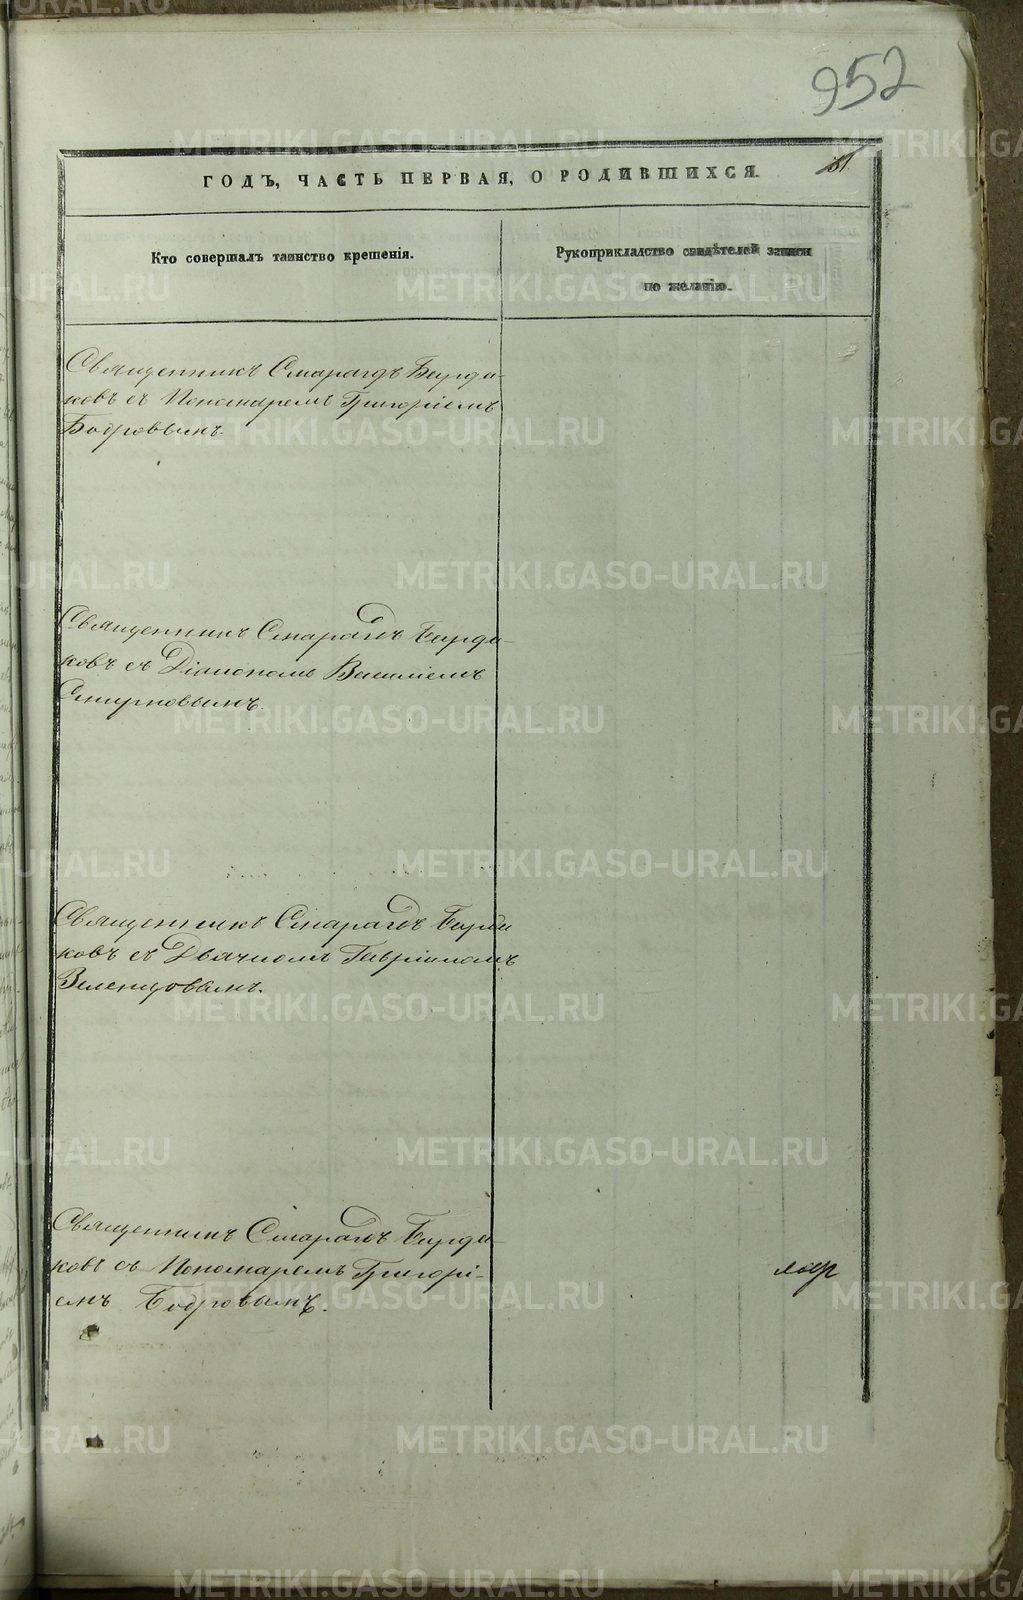 952
ГОДЪ, ЧАСТЬ ПЕРВАЯ, О РОДИВШИХСЯ.
Кто совершалъ таинство крещенія.
Рукоприкладство свидѣтелей записи
по желанію.
Священникъ Смарагдъ Бирди-
ковъ съ Пономаремъ Григоріемъ
Бобровымъ.
Священникъ Смарагдъ Бирди-
ковъ съ Діакономъ Василіемъ
Смирновымъ.
Священникъ Смарагдъ Бирди
ковъ съ Дьячкомъ Гавріиломъ
Зеленцовымъ.
Священникъ Смарагдъ Бирди-
ковъ съ Пономаремъ Григорі-
емъ Бобровымъ.
METRIKI.GASO-URAL.RU